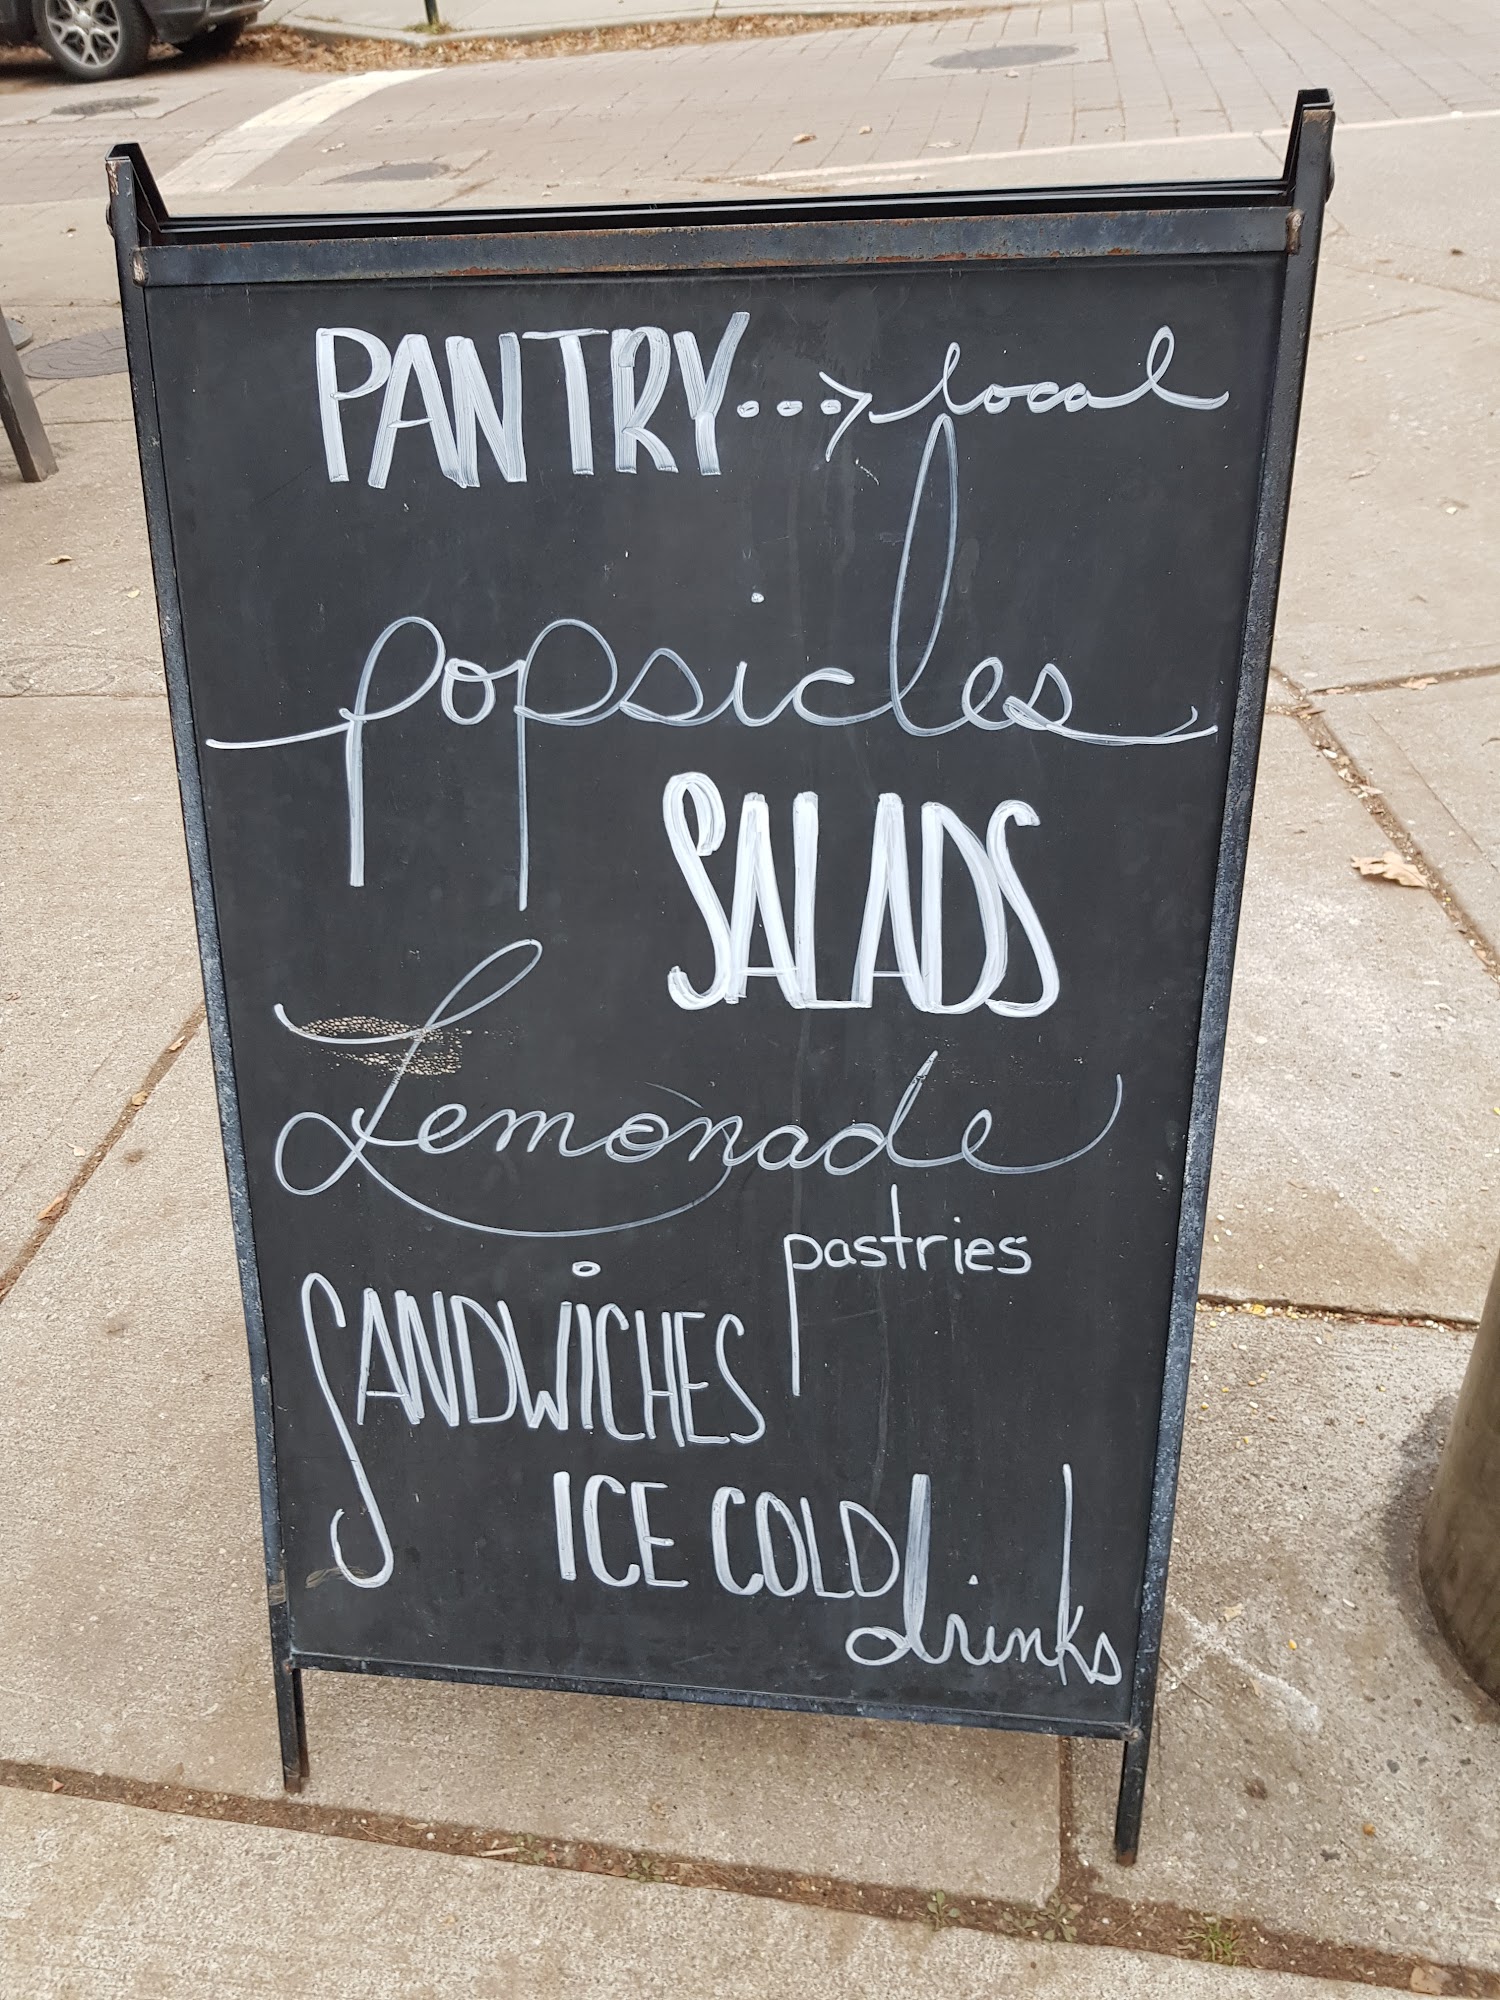 PANTRY...> local
popsicles
SALADS
Lemonade
pastries
SANDWiCHES
ICE COLD
drinks